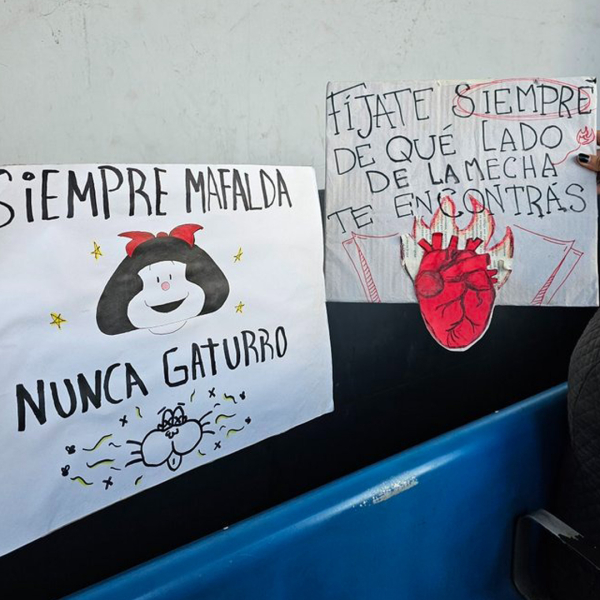 SiEMPRE MAFALDA
NUNCA GATURRO
FÍJATE SIEMPRE
DE QUÉ LADO
DE LA MECHA
TE ENCONTRÁS